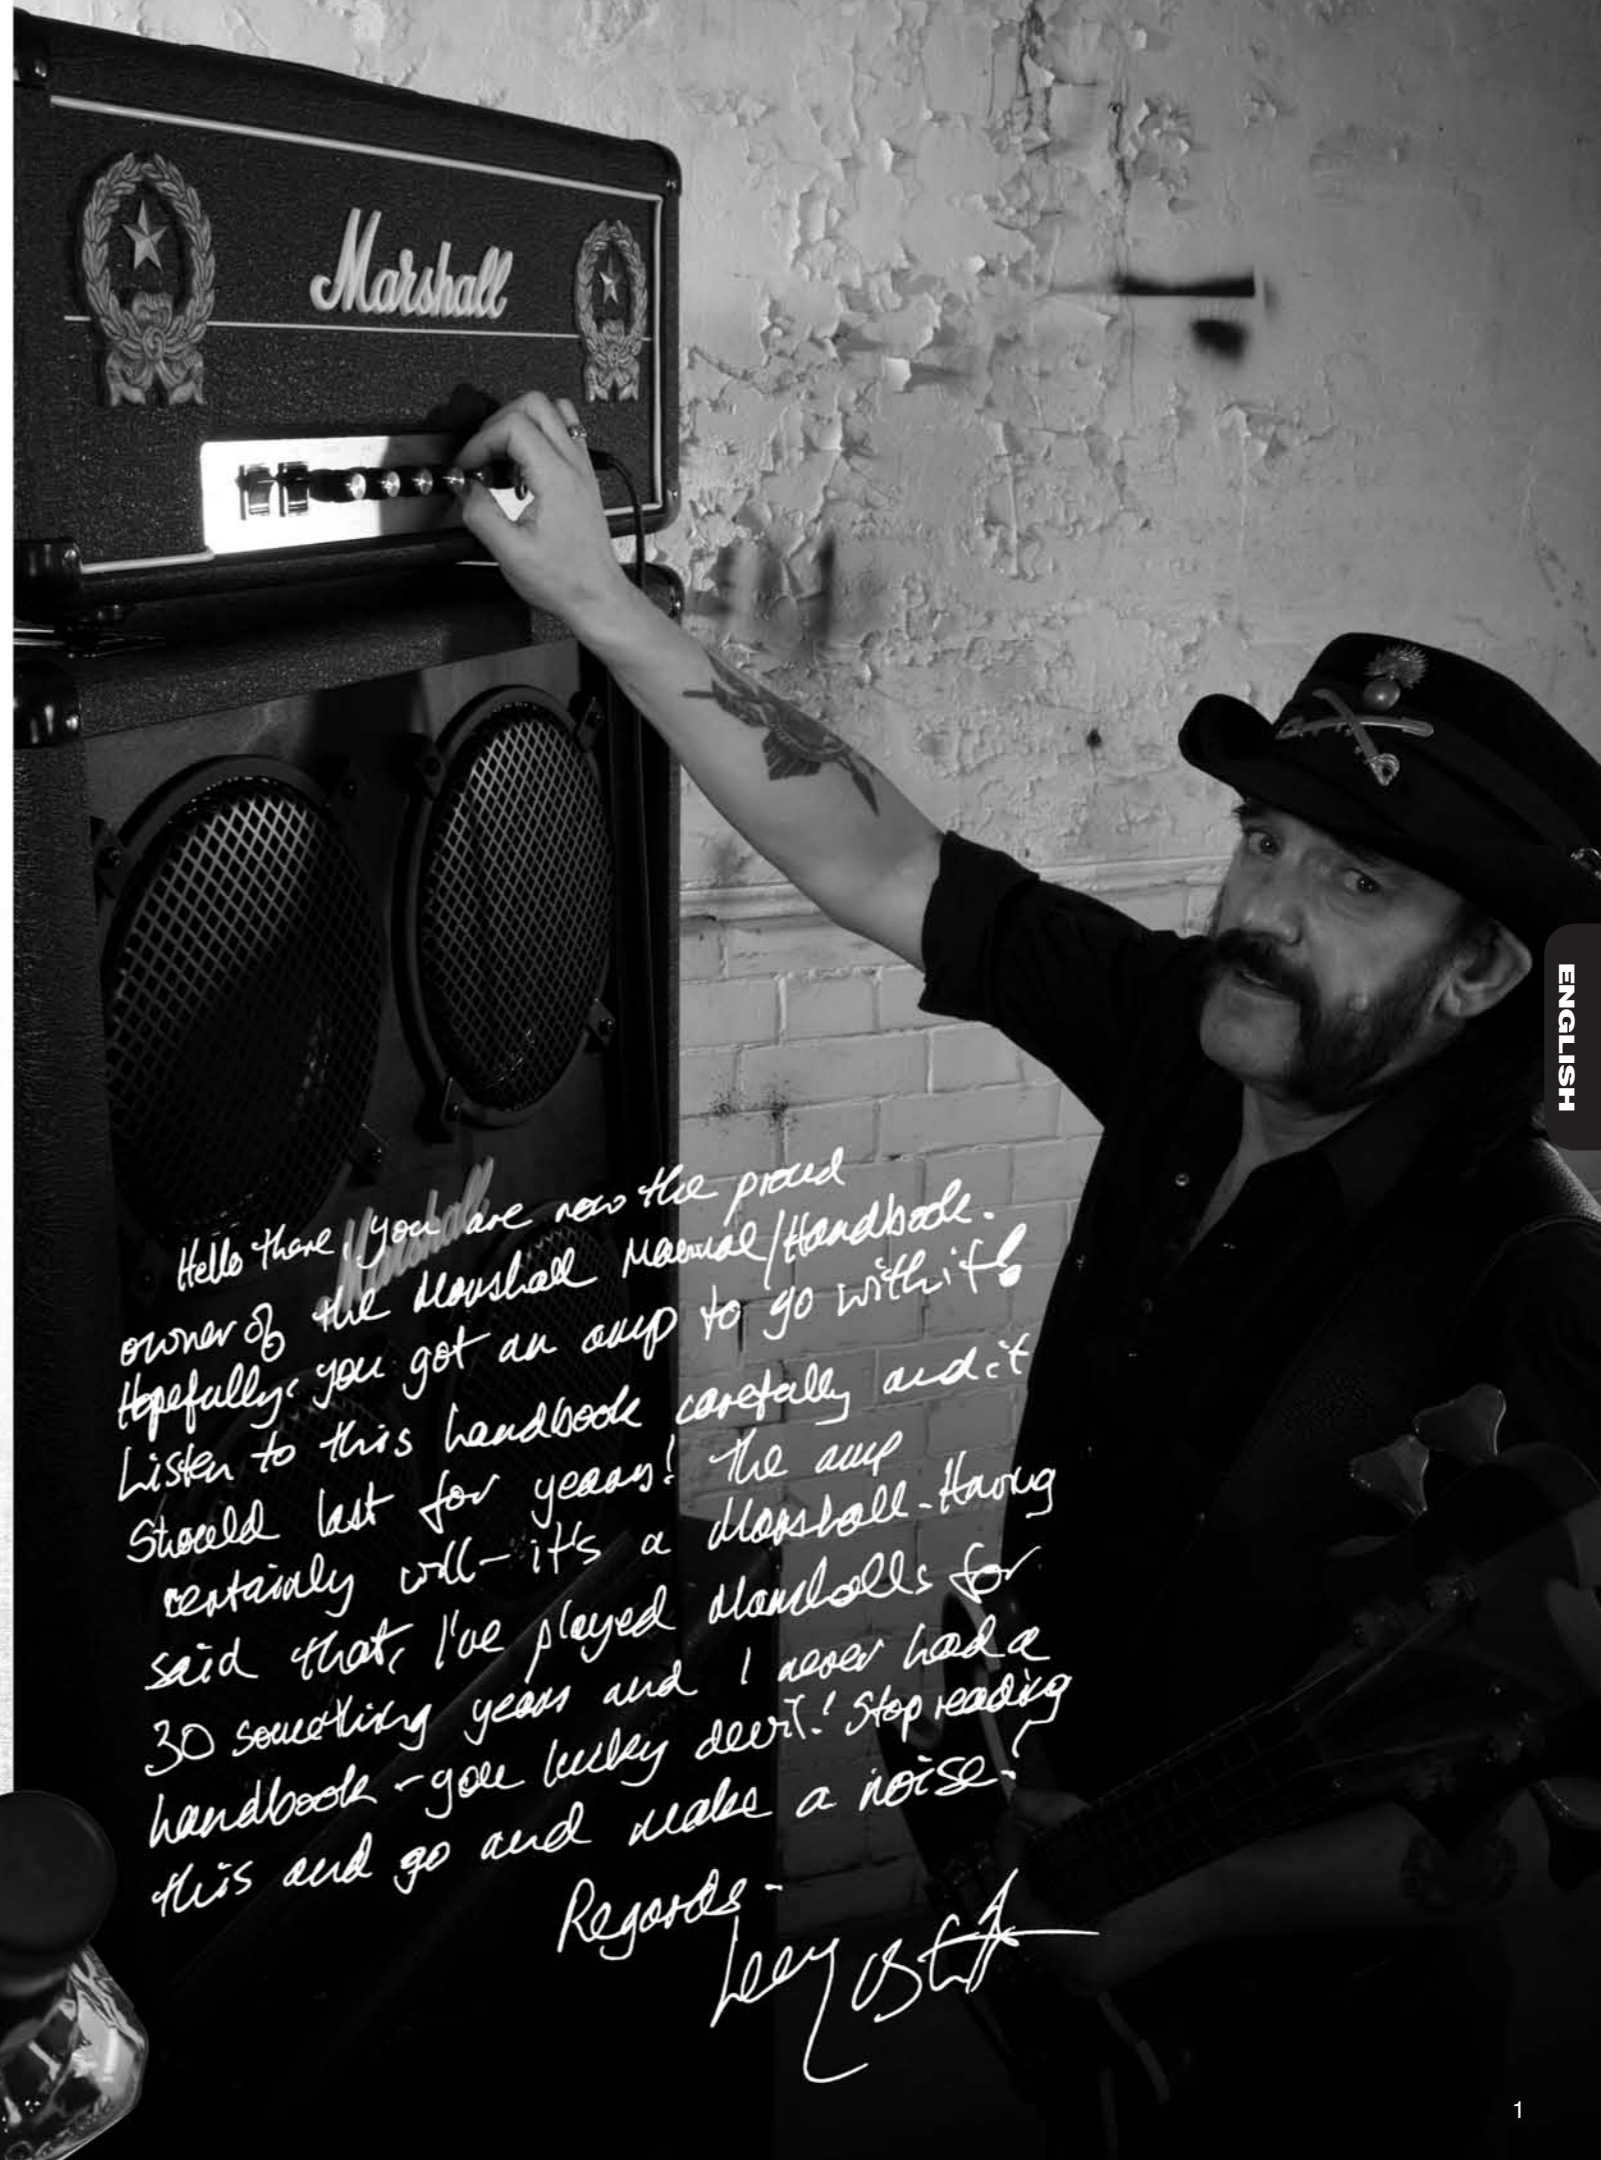 Marshall
ENGLISH
Marshall
Hello there, you are now the proud
owner of the Marshall Manual/Handbook.
Hopefully, you got an amp to go with it!
Listen to this handbook carefully and it
Should last for years! The amp
certainly will - it's a Marshall - Having
said that, I've played Marshalls for
30 something years and I never had a
handbook - you lucky devil! Stop reading
this and go and make a noise!
Regards -
1